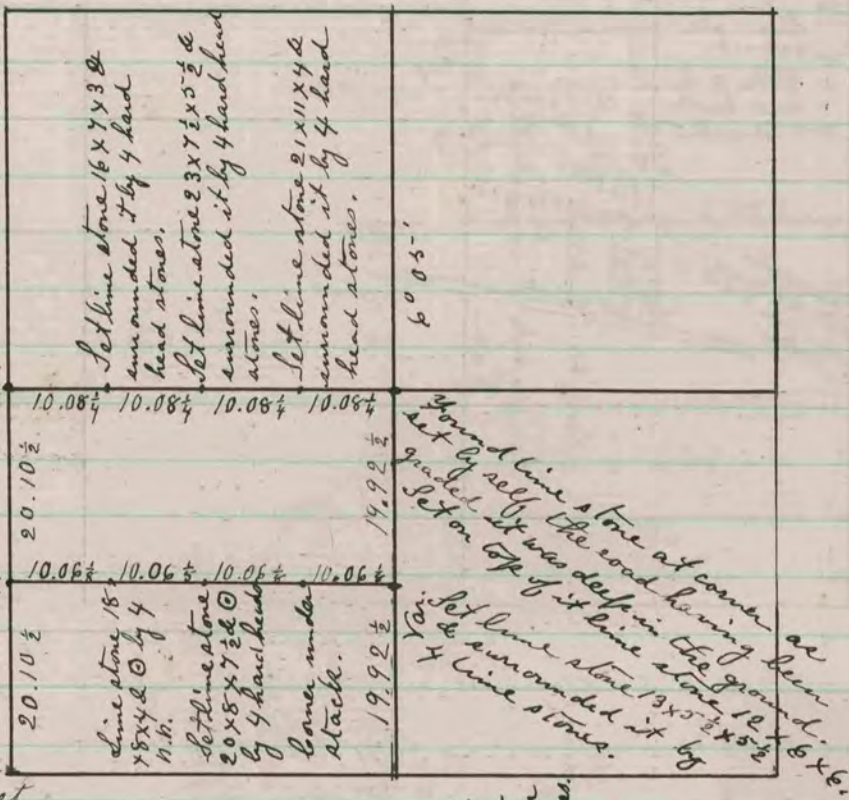 Set lime stone 16 x 7 x 3 &
surrounded it by 4 hard
head stones.
Set lime stone 23 x 7½ x 5½ &
surrounded it by 4 hard head
stones.
Set lime stone 21 x 11 x 4 &
surrounded it by 4 hard
head stones.
6° 05'
10.08¼ 10.08¼ 10.08¼ 10.08¼
20.10½
19.92½
10.06½ 10.06½ 10.06½ 10.06½
20.10½
Lime stone 18
x 8 x 4 & ⊙ by 4
h.h.
Set lime stone
20 x 8 x 7½ & ⊙
by 4 hard heads
Corner under
stack.
19.92½
Found lime stone at corner as
set by self the road having been
graded it was deep in the ground.
Set on top of it lime stone 12 x 6 x 6.
Var.
Set lime stone 13 x 5½ x 5½
& surrounded it by
4 lime stones.